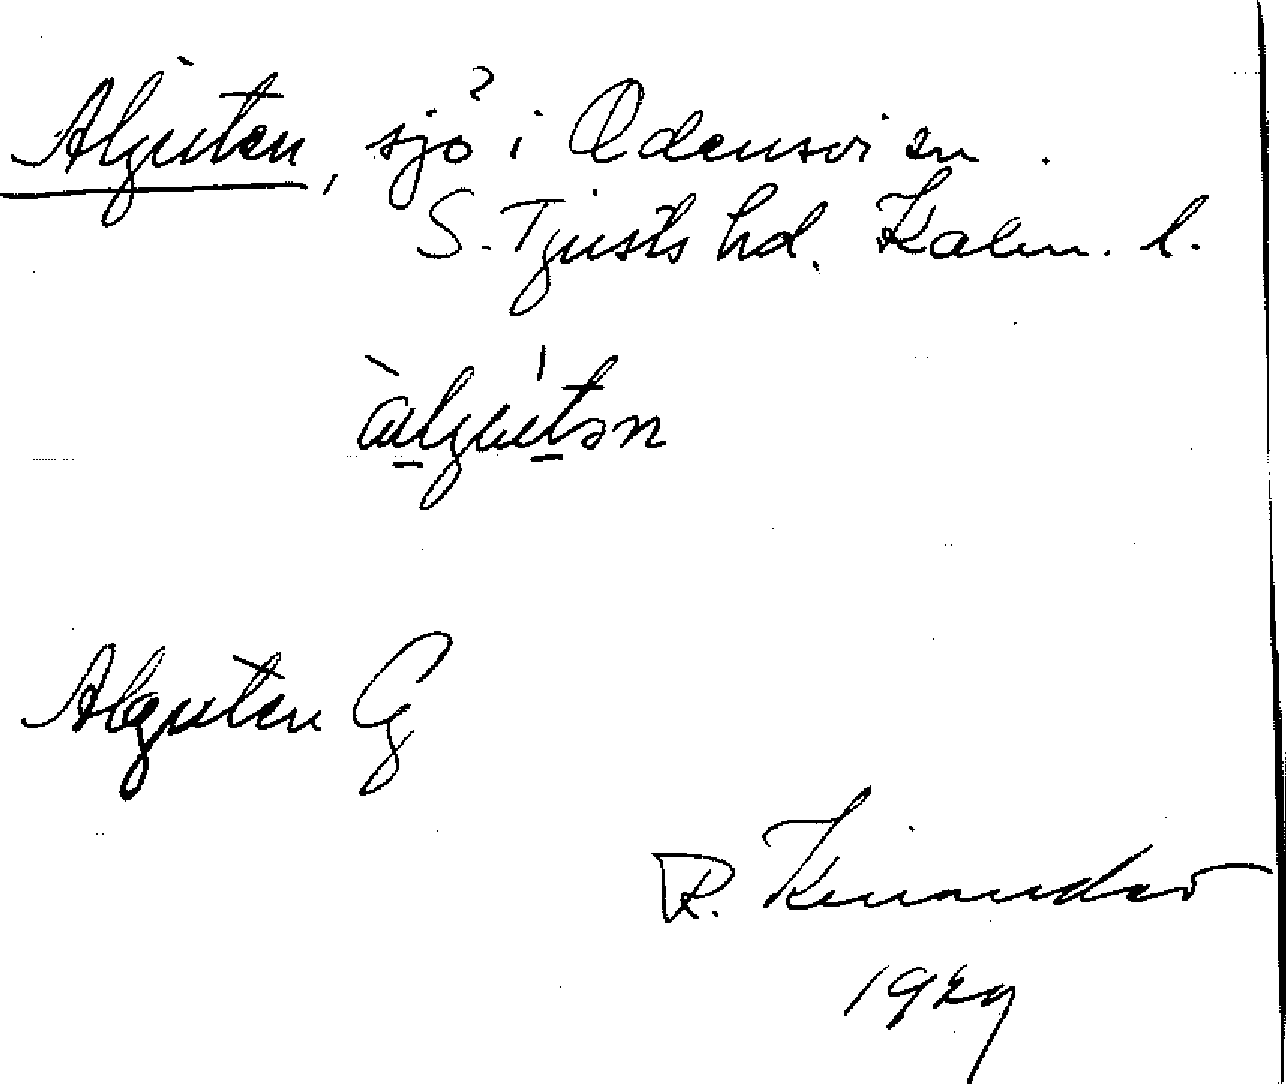 Alguten, sjö i Odensvi sn.
S. Tjusts hd. Kalm. l.
àlgu̱tən
Alguten Gg
R. Kinander
1929